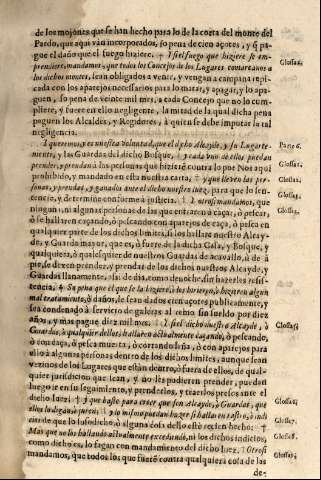 de los mojones que se han hecho para lo de la corta del monte del
Pardo, que aqui van incorporados, so pena de cien açotes, y q̃ pa-
gue el daño que el fuego hiziere. † I si el fuego que hiziere se em-
prendiere, mandamos, que todos los Concejos de los Lugares comarcanos a
los dichos montes, sean obligados a venir, y vengan a campana repi-
cada con los aparejos necessarios para lo matar, y apagar, y lo apa-
guen, so pena de veinte mil mrs. a cada Concejo que no lo cum-
pliere, y fuere en ello negligente, la mitad de la qual dicha pena
paguen los Alcaldes, y Regidores, a quien se debe imputar la tal
negligencia.
I queremos, y es nuestra voluntad, que el dicho Alcayde, y su Lugarte-
niente, y las Guardas del dicho Bosque, † y cada uno de ellos puedan
prender, y prendan a las personas que hiziere contra lo que Nos aqui
prohibido, y mandado en esta nuestra carta. † y que lleven las per-
sonas, y prendas, y ganados ante el dicho nuestro Juez, para que lo sen-
tencie, y determine conforme a justicia. † I otrosi mandamos, que
ningun, ni algunas personas de las que entraren a caçar, ò pescar,
ò se hallaren caçando, ò pescando con aparejos de caça, ò pesca en
qualquier parte de los dichos limites, si los hallare nuestro Alcay-
de, y Guarda mayor, que es, ò fuere de la dicha Casa, y Bosque, y
qualquiera, ò qualesquier de nuestros Guardas de acavallo, ù de à
pie, se dexen prender, y prendar de los dichos nuestros Alcayde, y
Guardas llanamente, assi de dia, como de noche, sin hazerles resis-
tencia, † So pena que el que se la hiziere, ò les hiriere, ò hiziere algun
mal tratamiento, ò daños, le sean dados cien açotes publicamente, y
sea condenado à servicio de galeras al remo sin sueldo por diez
años, y mas pague diez mil mrs. † I si el dicho nuestro Alcayde, ò
Guardas, ò qualquier dellos, hallaren actualmente caçando, ò pescando,
ò con caça, ò pesca muerta, ò cortando leña, ò con aparejos para
ello à algunas personas dentro de los dichos limites, aunque sean
vezinos de los Lugares que estàn dentro, ò fuera de ellos, de qual-
quier jurisdicion que sean, y no les pudieren prender, puedan
luego ir en su seguimiento, y prenderlos, y traerlos presos ante el
dicho Juez: † I que baste para creer que son Alcayde, ò Guardas, que
ellos lo digan, ò juren: † y lo mismo puedan hazer si hallaren rastro, ò indi-
cio de que lo susodicho, ò alguna cosa dello estè recien hecho: †
Mas que no los hallando actualmente excediendo, ni los dichos indicios,
como dicho es, lo hagan con mandamiento del dicho Juez. † Otrosi
mandamos, que todos los que fueren contra qualquiera cosa de las
de-
Glossa
Parte 6.
Glossa
Glossa
Glossa
Glossa
Glossa
Glossa
Glossa
Glossa